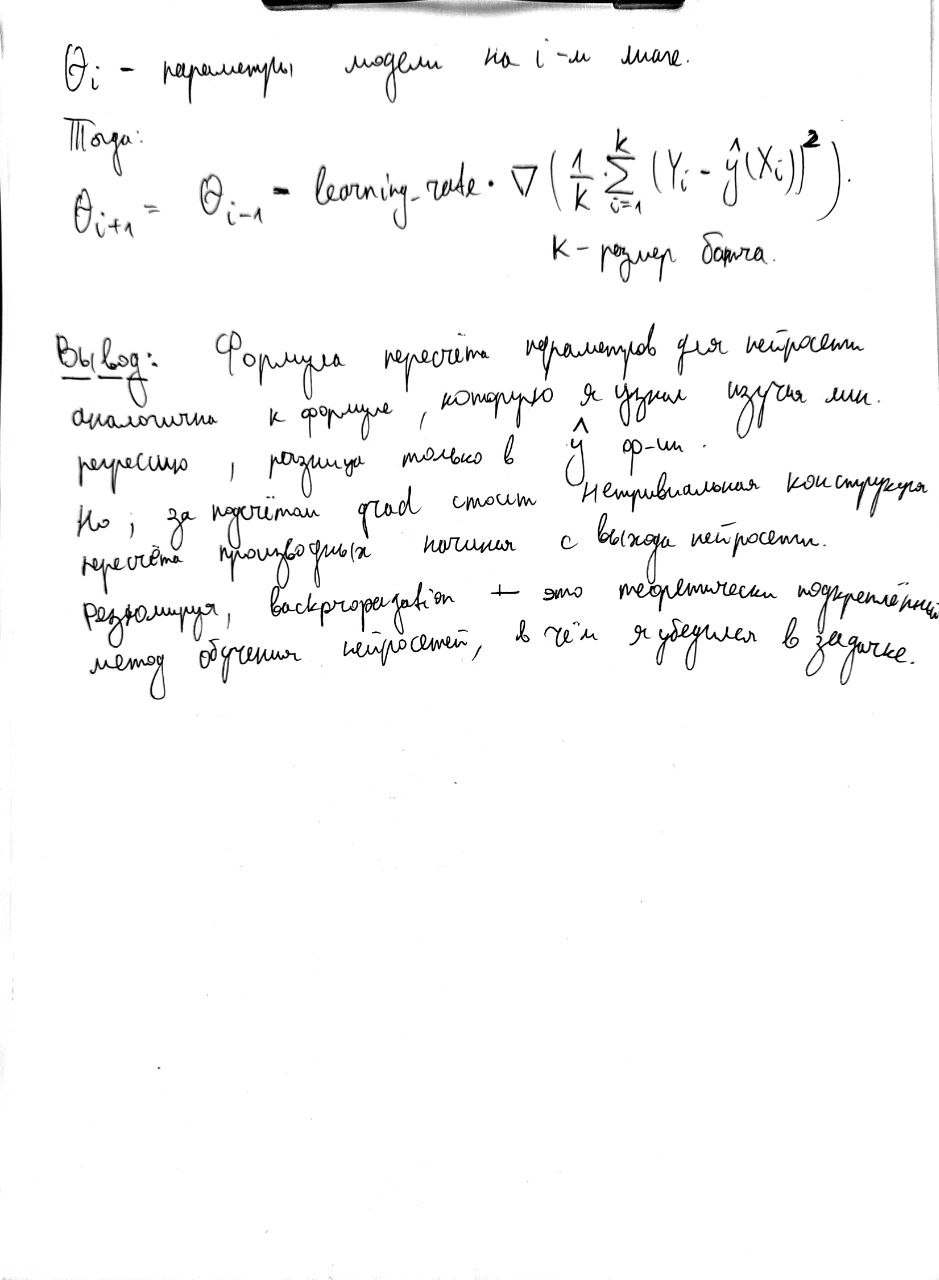 θᵢ - параметры модели на i-м шаге.
Тогда:
θᵢ₊₁ = θᵢ₋₁ - learning_rate · ∇ (1/k · ∑ᵢ₌₁ᵏ (Yᵢ - ŷ(Xᵢ))²).
k - размер батча.
Вывод: Формула пересчёта параметров для нейросети
аналогична к формуле, которую я узнал изучая лин.
регрессию, разница только в ŷ ф-ии.
Но, за подсчётом grad стоит нетривиальная конструкция
пересчёта производных начиная с выхода нейросети.
Резюмируя, backpropagation — это теоретически подкреплённый
метод обучения нейросетей, в чём я убедился в задачке.